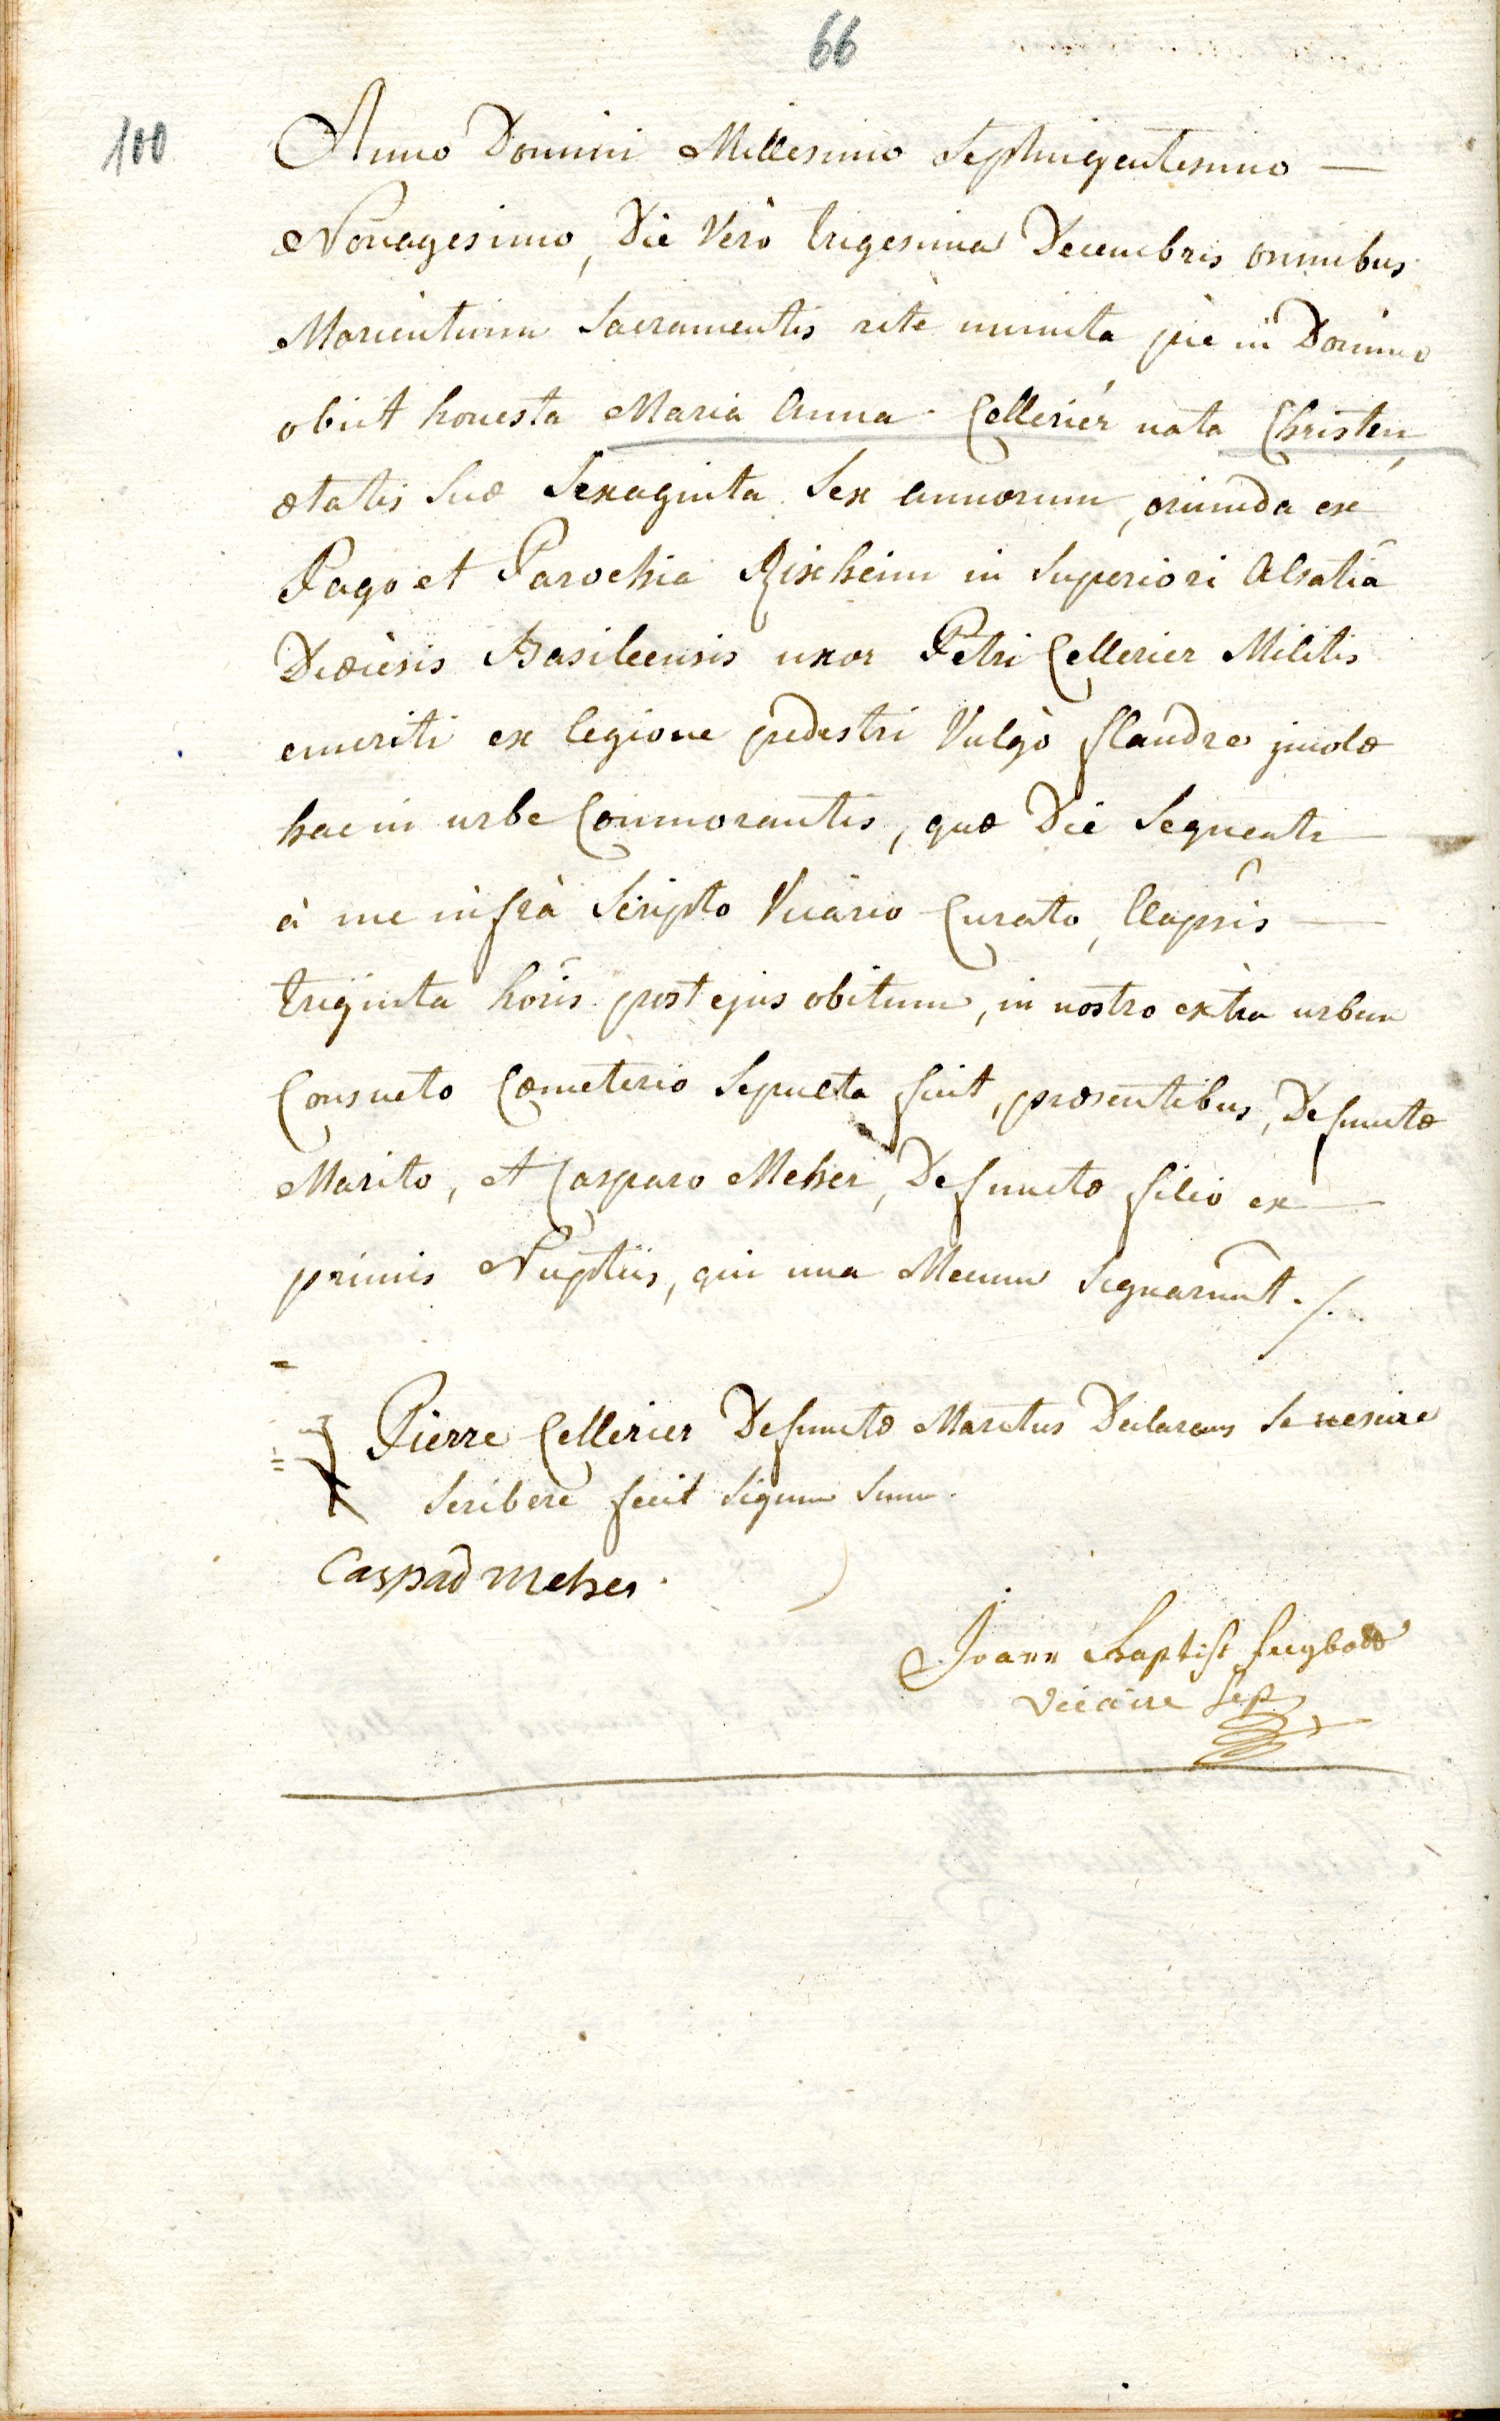 66
100
Anno Domini Millesimo Septuigentesimo —
Nonagesimo, Die Verò trigesima Decembris omnibus
Morientium Sacramentis ritè munita piè in Domino
obiit honesta Maria Anna Cellerier nata Christen,
ætatis Suæ Sexaginta Sex annorum, oriunda ex
Pago et Parochia Rixheim in Superiori Alsatiâ
Diœcesis Basileensis uxor Petri Cellerier Militis
emeriti ex legione pedestri Vulgò flandre
hac in urbe Commorantis, quæ Die Sequenti —
à me infrà Scripto Vicario Curato, Elapsis —
triginta horis post ejus obitum, in nostro extra urbem
Consueto Cœmeterio Sepulta fuit, præsentibus, Defunctæ
Marito, et Casparo Meher, Defunctæ filio ex —
primis Nuptiis, qui una Mecum Signarunt ./.
Pierre Cellerier Defunctæ Maritus Declarans Se nescire
Scribere fecit Signum Suum.
Caspar Meher.
Joann Baptist
vicaire